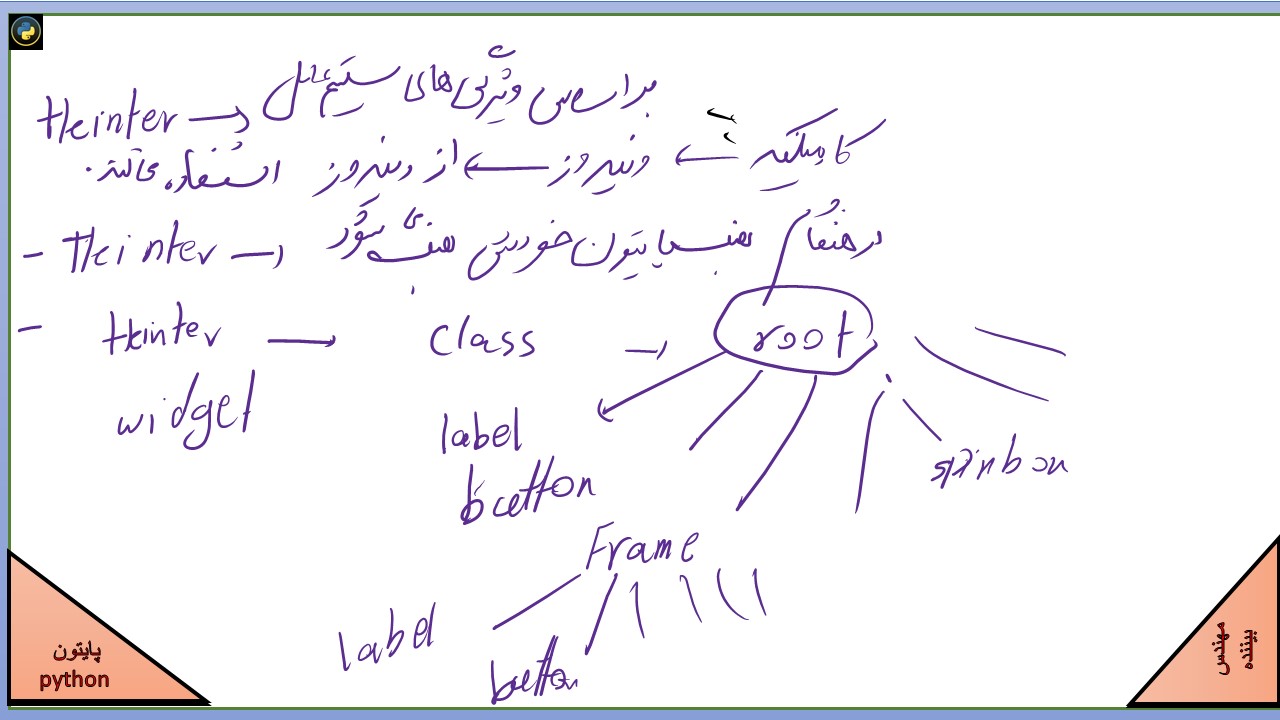 tkinter → بر اساس ویژگی های سیستم عامل
کامپیوتر ← ویندوز ← از ویندوز استفاده می کند.
- tkinter → در هنگام نصب پایتون خودش نصب می شود
- tkinter → class → root
widget
label
button
spinbox
Frame
label
button
پایتون
python
مهندس
بیننده